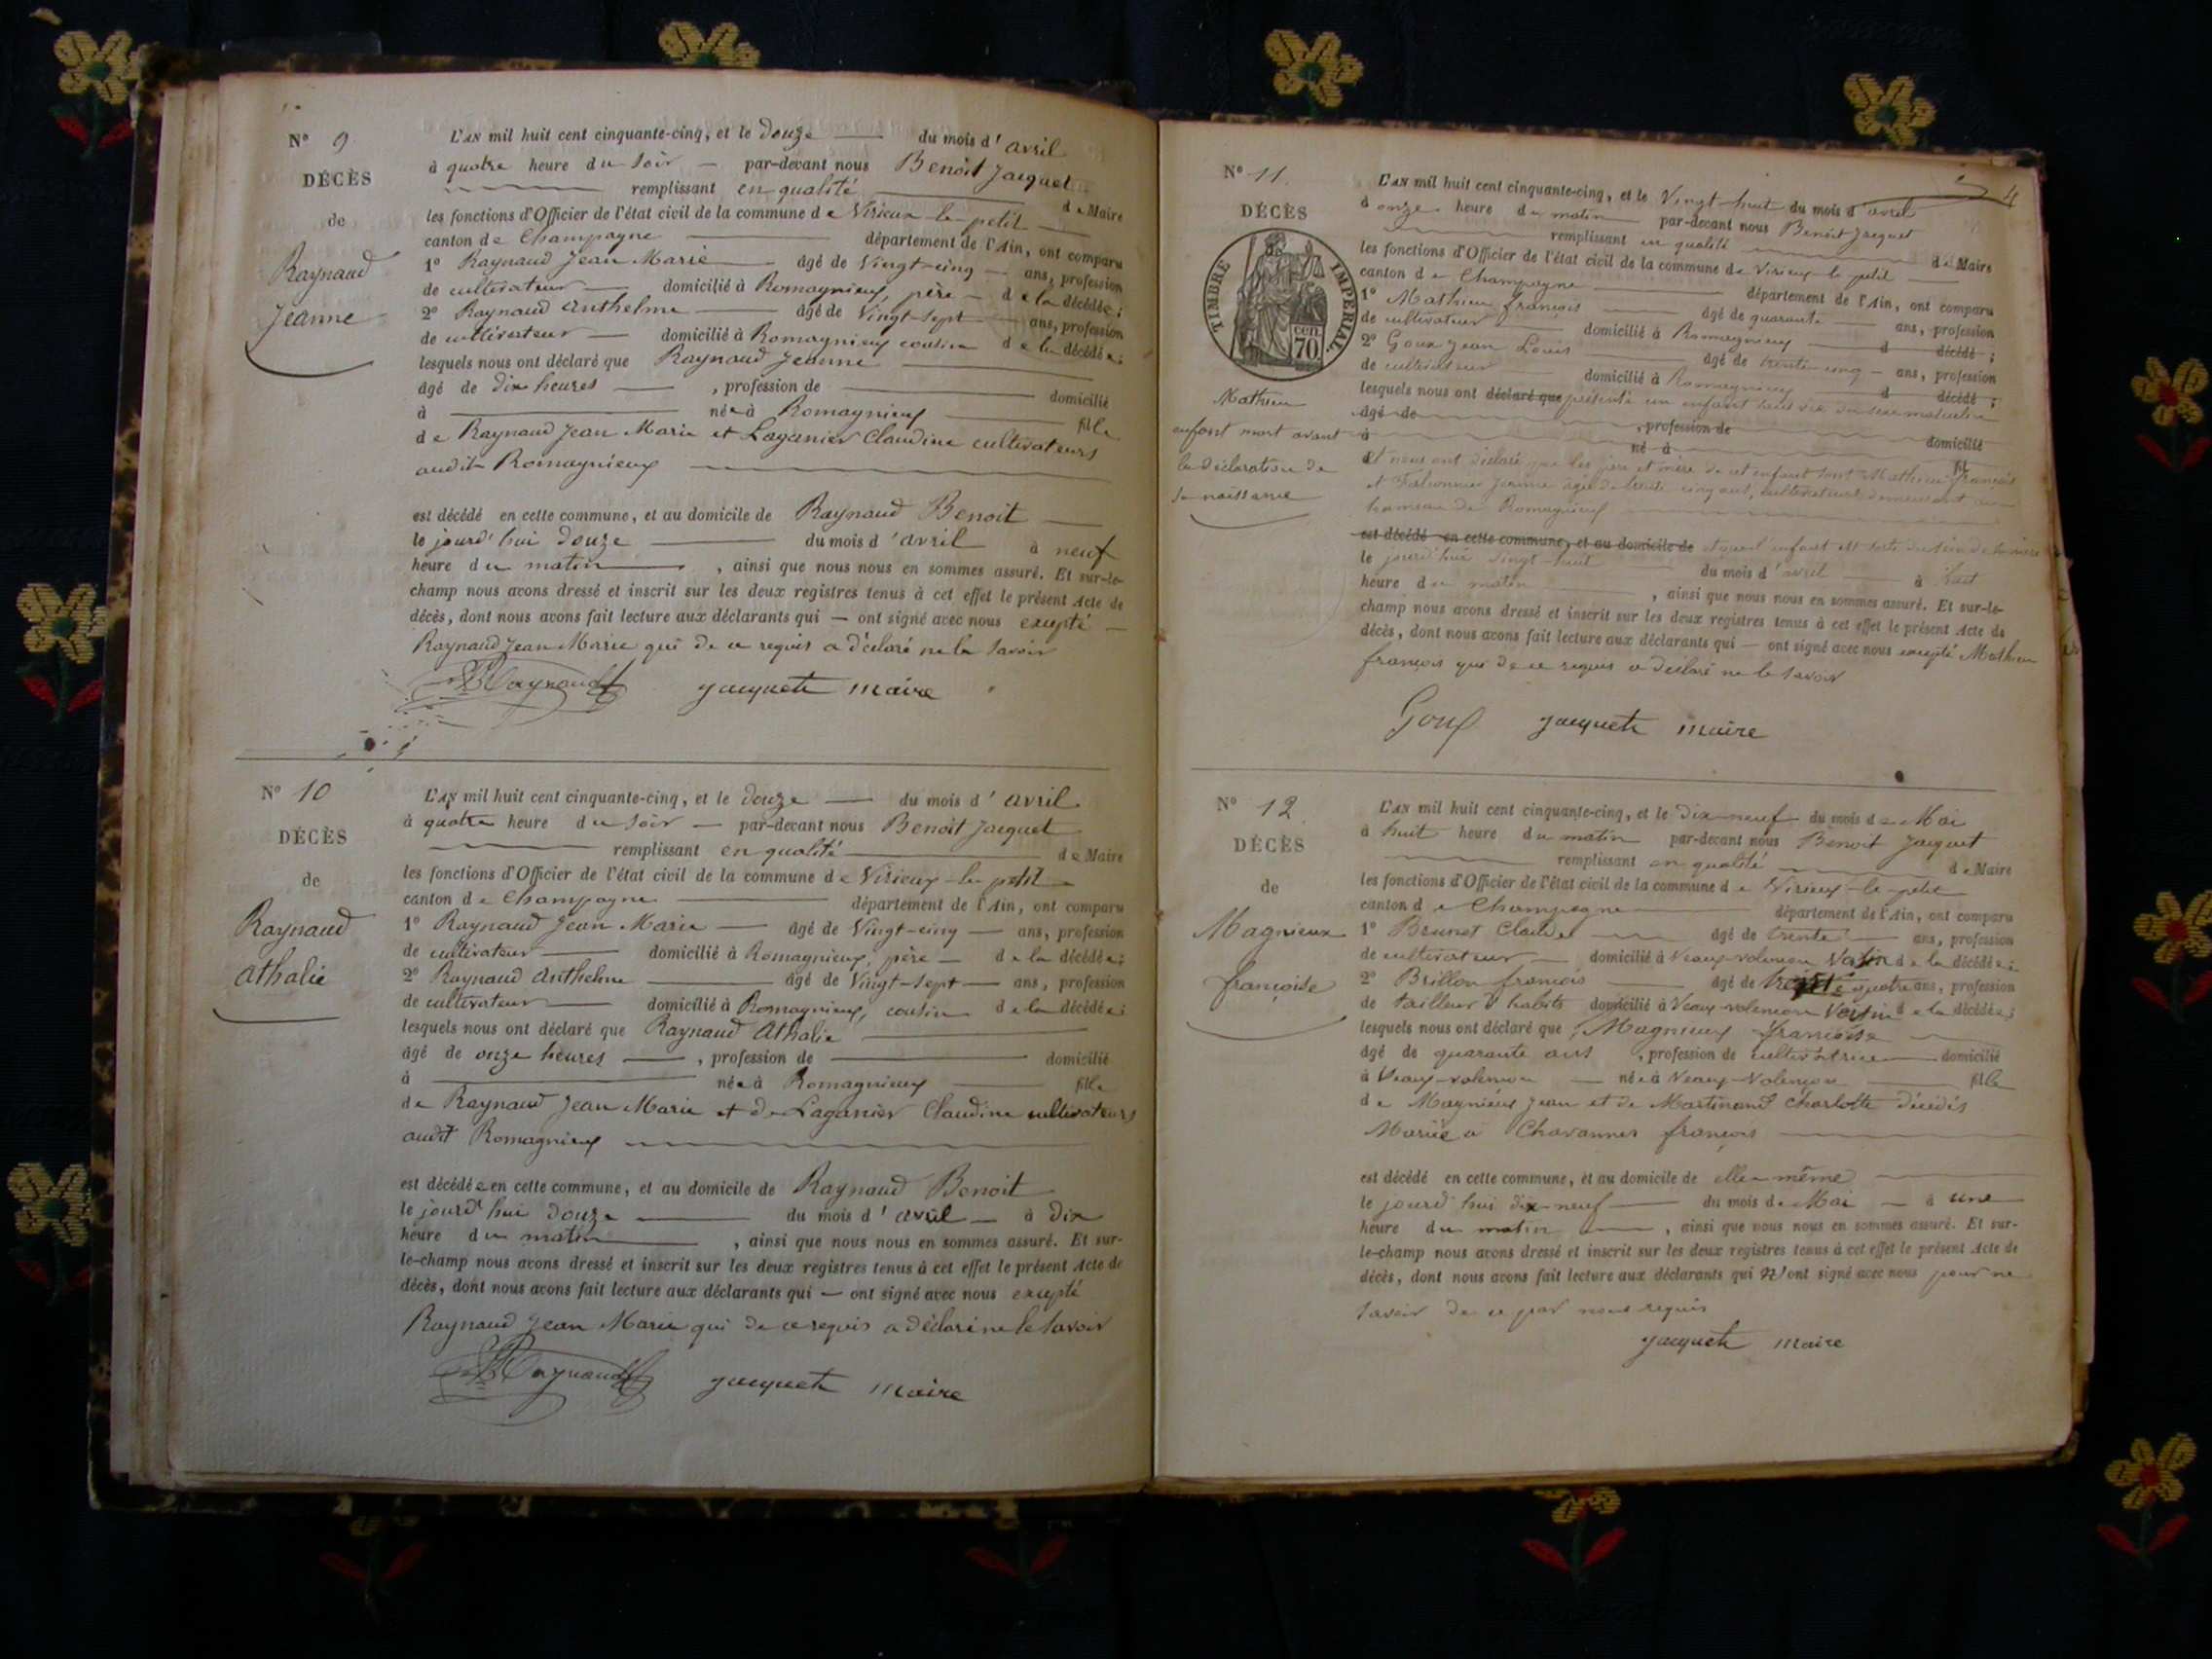 N° 9
DÉCÈS
de
Raynaud
Jeanne
L'AN mil huit cent cinquante-cinq, et le douze du mois d'avril
à quatre heure du soir par-devant nous Benoit Jacquet
remplissant en qualité de Maire
les fonctions d'Officier de l'état civil de la commune de Virieux-le-petit
canton de Champagne département de l'Ain, ont comparu
1° Raynaud Jean Marie âgé de Vingt-cinq ans, profession
de cultivateur domicilié à Romagnieux, père de la décédée;
2° Raynaud Anthelme âgé de Vingt-sept ans, profession
de cultivateur domicilié à Romagnieux cousin de la décédée;
lesquels nous ont déclaré que Raynaud Jeanne
âgé de dix heures , profession de domicilié
à née à Romagnieux fille
de Raynaud Jean Marie et Laganier Claudine cultivateurs
audit Romagnieux
est décédé en cette commune, et au domicile de Raynaud Benoit
le jourd'hui douze du mois d'avril à neuf
heure du matin , ainsi que nous nous en sommes assuré. Et sur-le-
champ nous avons dressé et inscrit sur les deux registres tenus à cet effet le présent Acte de
décès, dont nous avons fait lecture aux déclarants qui — ont signé avec nous excepté
Raynaud Jean Marie qui de ce requis a déclaré ne le savoir
Raynaud jacquet maire
N° 10
DÉCÈS
de
Raynaud
Athalie
L'AN mil huit cent cinquante-cinq, et le douze du mois d'avril
à quatre heure du soir par-devant nous Benoit Jacquet
remplissant en qualité de Maire
les fonctions d'Officier de l'état civil de la commune de Virieux-le-petit
canton de Champagne département de l'Ain, ont comparu
1° Raynaud Jean Marie âgé de Vingt-cinq ans, profession
de cultivateur domicilié à Romagnieux, père de la décédée;
2° Raynaud Anthelme âgé de Vingt-sept ans, profession
de cultivateur domicilié à Romagnieux, cousin de la décédée;
lesquels nous ont déclaré que Raynaud Athalie
âgé de onze heures , profession de domicilié
à née à Romagnieux fille
de Raynaud Jean Marie et de Laganier Claudine cultivateurs
audit Romagnieux
est décédée en cette commune, et au domicile de Raynaud Benoit
le jourd'hui douze du mois d'avril à dix
heure du matin , ainsi que nous nous en sommes assuré. Et sur-
le-champ nous avons dressé et inscrit sur les deux registres tenus à cet effet le présent Acte de
décès, dont nous avons fait lecture aux déclarants qui — ont signé avec nous excepté
Raynaud Jean Marie qui de ce requis a déclaré ne le savoir
Raynaud jacquet maire
4
N° 11.
DÉCÈS
TIMBRE IMPERIAL
cen. 70
Mathieu
enfant mort avant
la déclaration de
sa naissance
L'AN mil huit cent cinquante-cinq, et le Vingt-huit du mois d'avril
à onze heure du matin par-devant nous Benoit Jacquet
remplissant en qualité de Maire
les fonctions d'Officier de l'état civil de la commune de Virieux-le-petit
canton de Champagne département de l'Ain, ont comparu
1° Mathieu françois âgé de quarante ans, profession
de cultivateur domicilié à Romagnieux d décédé ;
2° Goux Jean Louis âgé de trente-cinq ans, profession
de cultivateur domicilié à Romagnieux d décédé ;
lesquels nous ont déclaré que présenté un enfant sans vie du sexe masculin
âgé de , profession de domicilié
à né à fil
et nous ont déclaré que les père et mère de cet enfant sont Mathieu françois
et Jeanine âgée de trente cinq ans, cultivateurs demeurant au
hameau de Romagnieux
est décédé en cette commune, et au domicile de et que l'enfant est sorti du sein de sa mère
le jourd'hui vingt-huit du mois d'avril à huit
heure du matin , ainsi que nous nous en sommes assuré. Et sur-le-
champ nous avons dressé et inscrit sur les deux registres tenus à cet effet le présent Acte de
décès, dont nous avons fait lecture aux déclarants qui — ont signé avec nous excepté Mathieu
françois qui de ce requis a déclaré ne le savoir
Goux jacquet maire
N° 12.
DÉCÈS
de
Magnieux
françoise
L'AN mil huit cent cinquante-cinq, et le dix-neuf du mois de Mai
à huit heure du matin par-devant nous Benoit Jacquet
remplissant en qualité de Maire
les fonctions d'Officier de l'état civil de la commune de Virieux-le-petit
canton de Champagne département de l'Ain, ont comparu
1° Brunet Claude âgé de trente ans, profession
de cultivateur domicilié à Veaux-volencon Voisin de la décédée;
2° Brillon françois âgé de trente quatre ans, profession
de tailleur d'habits domicilié à Veaux-volencon Voisin de la décédée;
lesquels nous ont déclaré que Magnieux françoise
âgé de quarante ans , profession de cultivatrice domicilié
à Veaux-volencon née à Veaux-Volencon fille
de Magnieux Jean et de Martinand Charlotte décédés
Mariée à Chavannes françois
est décédé en cette commune, et au domicile de elle-même
le jourd'hui dix-neuf du mois de Mai à une
heure du matin , ainsi que nous nous en sommes assuré. Et sur-
le-champ nous avons dressé et inscrit sur les deux registres tenus à cet effet le présent Acte de
décès, dont nous avons fait lecture aux déclarants qui n'ont signé avec nous pour ne
savoir de ce par nous requis
jacquet maire